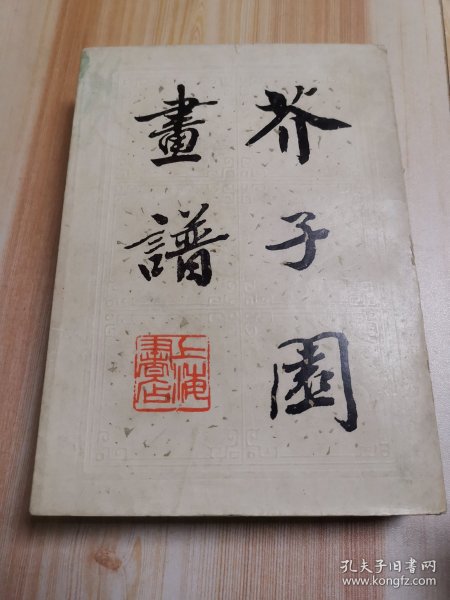 芥子園
畫譜
上海書店
孔夫子旧书网
www.kongfz.com